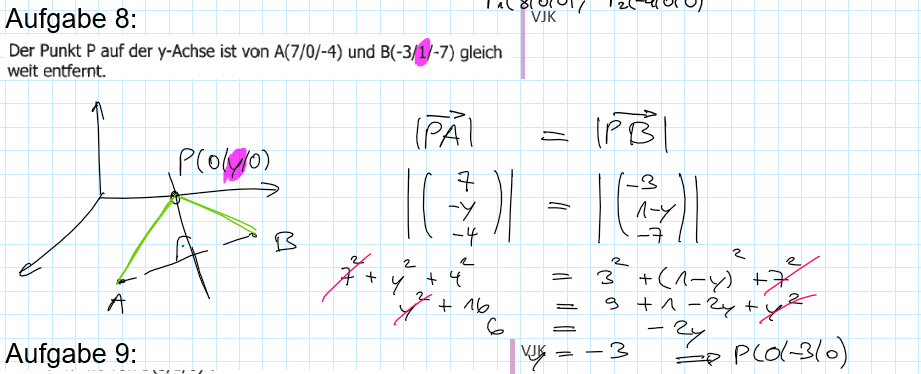 VJK
Aufgabe 8:
Der Punkt P auf der y-Achse ist von A(7/0/-4) und B(-3/1/-7) gleich
weit entfernt.
P(0/y/0)
A
B
|PA| = |PB|
|(7 -y -4)| = |(-3 1-y -7)|
7² + y² + 4² = 3² + (1-y)² + 7²
y² + 16 = 9 + 1 - 2y + y²
6 = -2y
VJK
y = -3 ⟹ P(0/-3/0)
Aufgabe 9: